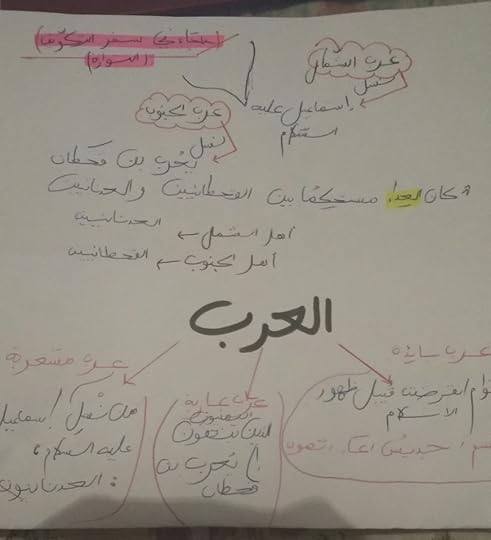 (جاء في سفر التكوين)
(التوراة)
عرب الشمال
نسل
إسماعيل عليه
السلام
عرب الجنوب
نسل
يعُرب بن قحطان
* كان العداء مستحكمًا بين القحطانيين والعدنانيين
أهل الشمال ← العدنانيين
أهل الجنوب ← القحطانيين
العرب
عرب بائدة
انقرضت قبيل ظهور
الإسلام
عرب عاربة
اليمنيون
الذين ينتمون
إلى يعُرب بن
قحطان
عرب مستعربة
من نسل إسماعيل
عليه السلام
: العدنانيون